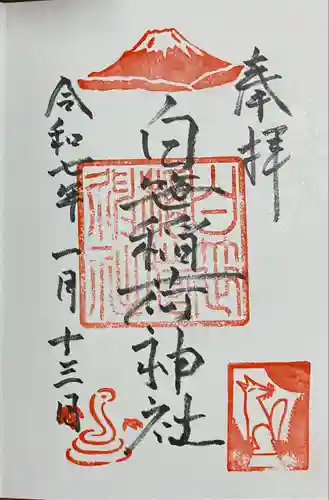 奉拝
白笹稲荷神社
令和七年 一月 十三日